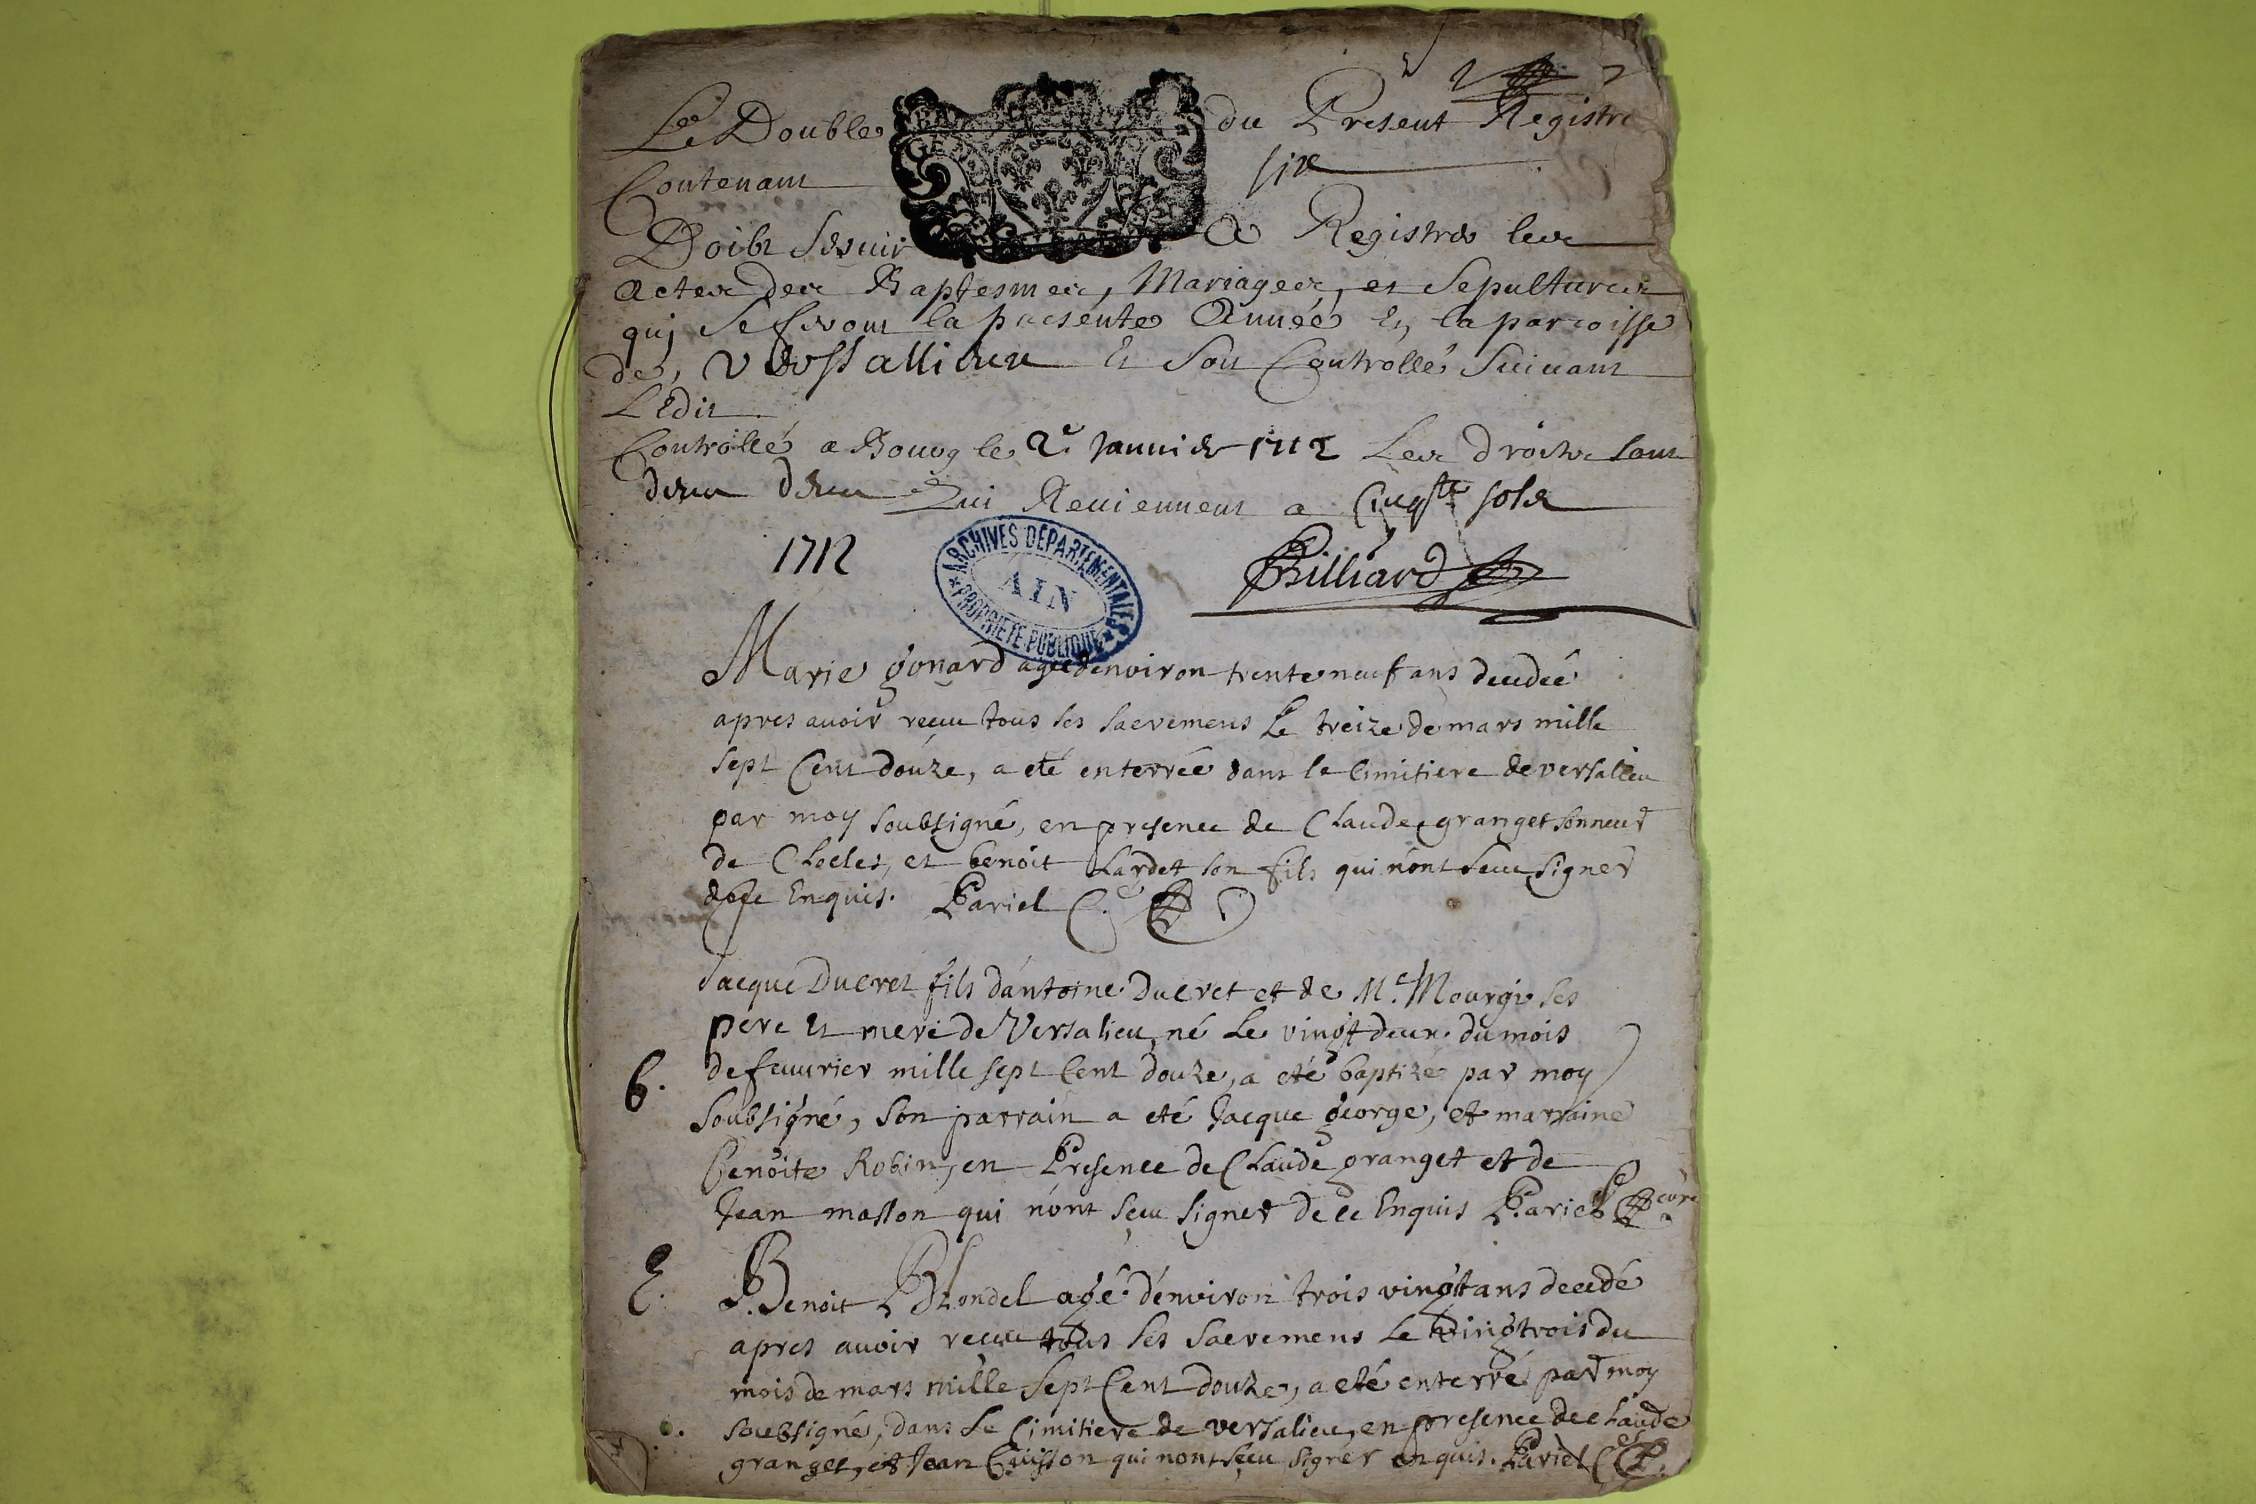 Le Double du Present Registre
Contenant six
Doibt Servir a Registrer les
actes des Baptesmes, Mariages, et Sepultures
qui se feront la presente Année En la parroisse
de, Versallieu Et Sera Controllé Suivant
L'Edit
Controllé a Bourg le 2e Janvier 1712 Les droits sont
deux deux Qui Reviennent a Cinqte sols
1712
Billiard
ARCHIVES DÉPARTEMENTALES
AIN
PROPRIÉTÉ PUBLIQUE
Marie gonard agée denviron trente neuf ans decedée
apres avoir receu tous ses sacremens Le treize de mars mille
sept Cent douze, a eté enterrée dans le Cimitiere de versalieu
par moy soubsigné, en presence de Claude granget sonneur
de Cloches, et benoit Lardet son fils qui n'ont sceu signer
de ce Enquis. Pariel C.
Jacque Ducret fils d'antoine Ducret et de Me. Mourgi ses
pere Et mere de Versalieu, né Le vingt deux du mois
B. de fevurier mille sept Cent douze, a eté baptizé par moy
Soubsigné, son parrain a eté Jacque george, et marraine
Benoite Robin, en Presence de Claude granget et de
Jean masson qui n'ont sceu signer de ce Enquis Pariel curé
E. Benoit Blondel agé d'environ trois vingt ans decedé
apres avoir receu tous ses sacremens Le vingt trois du
mois de mars mille Sept Cent douze, a eté enterré par moy
soubsigné, dans Le Cimitiere de versalieu, en presence de Claude
granget, et Jean Cuisson qui n'ont sceu signer enquis. Pariel C